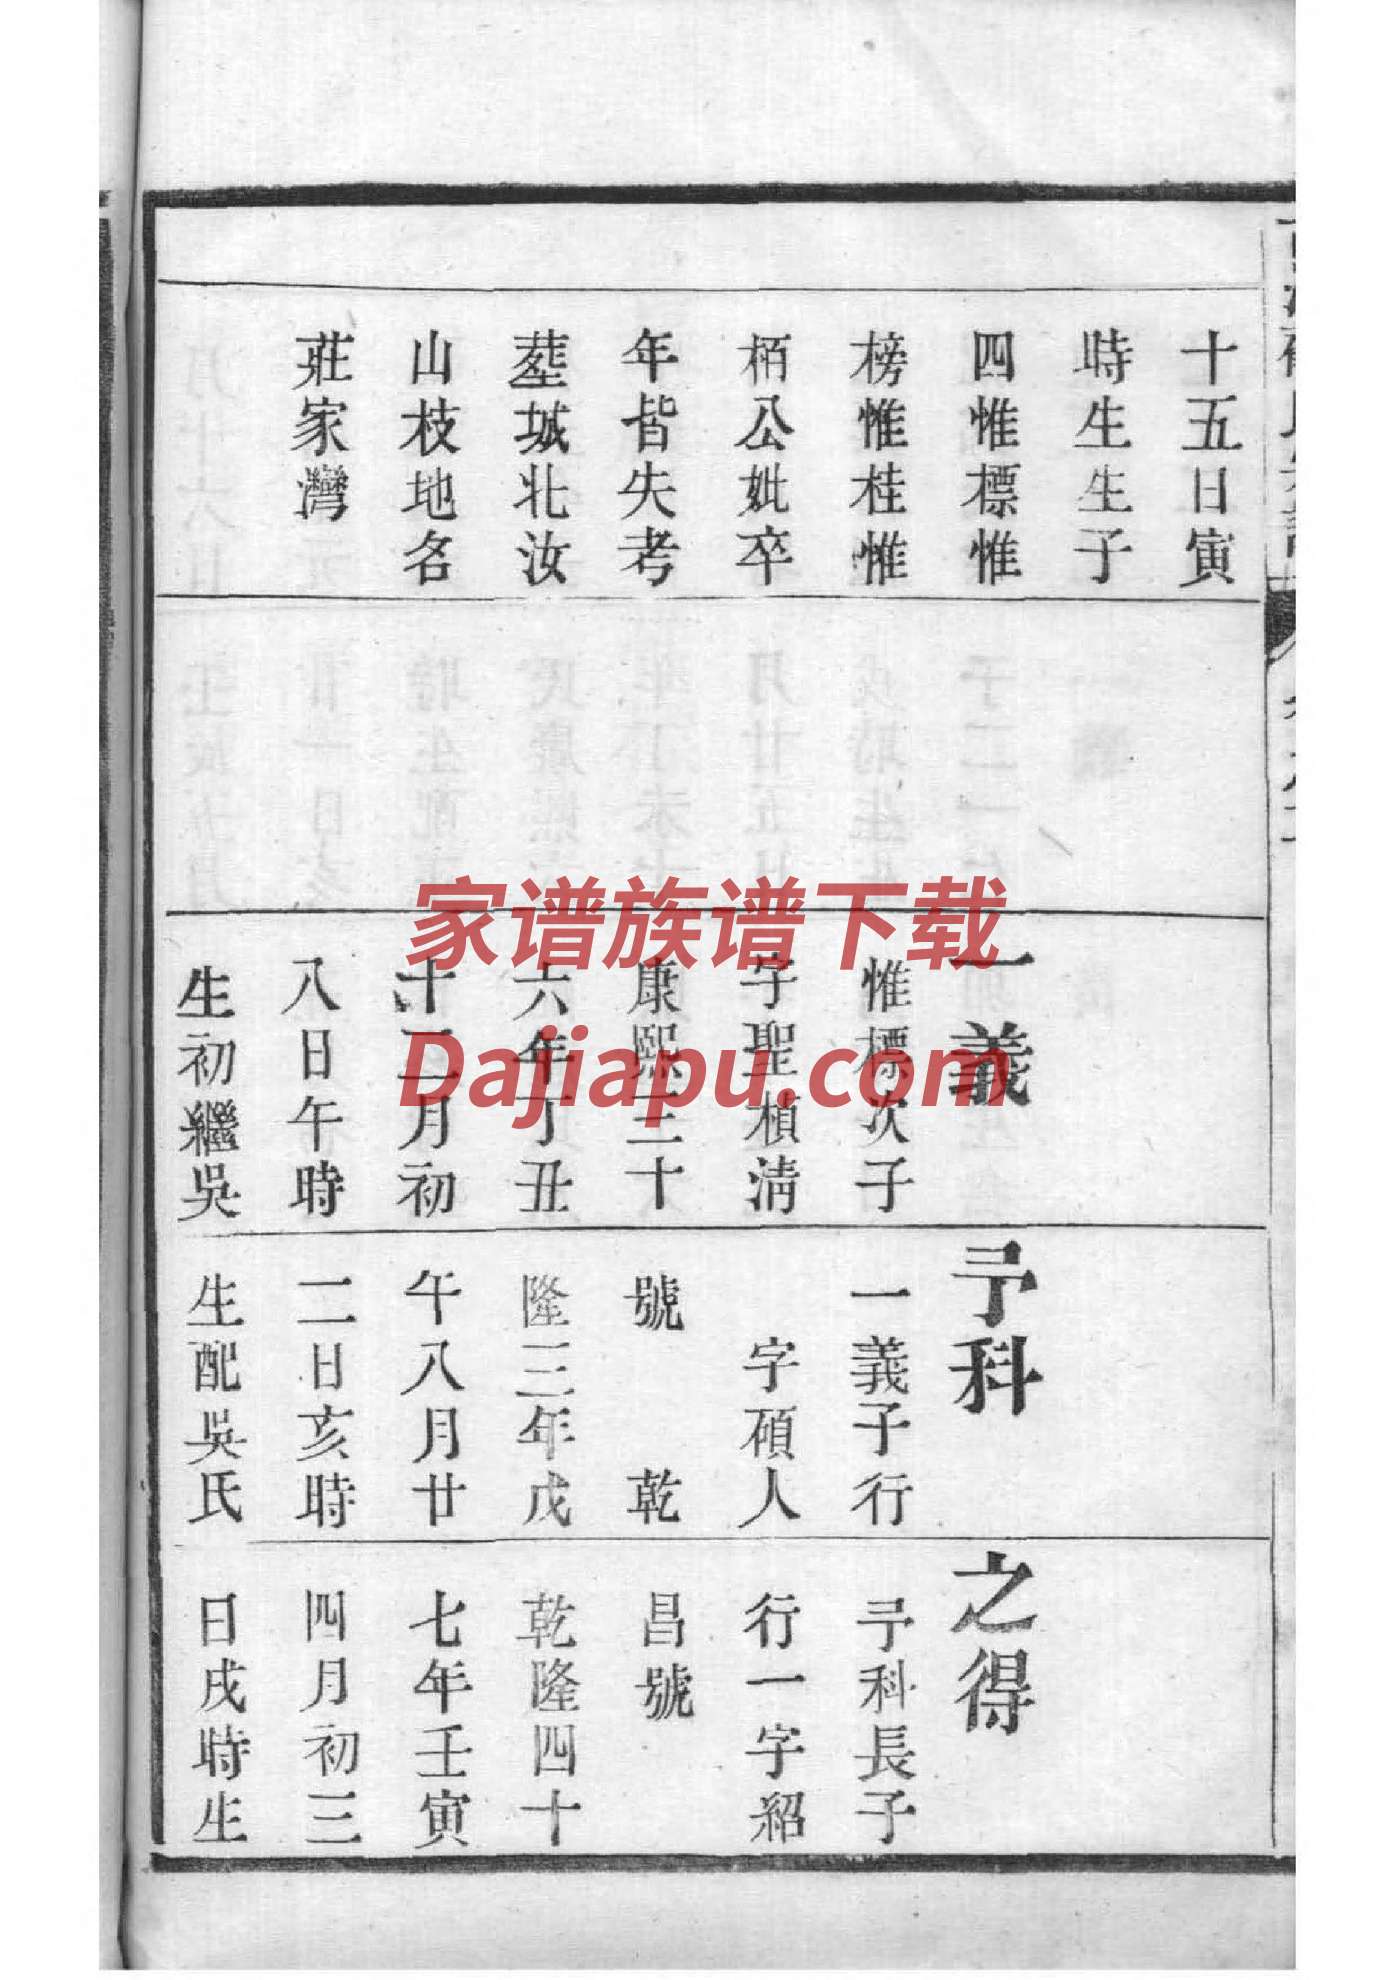 十五日寅
時生生子
四惟標惟
榜惟桂惟
栢公妣卒
年皆失考
塟城北汝
山枝地名
莊家灣
一義
惟標次子
字聖楨清
康熙三十
六年丁丑
十二月初
八日午時
生初繼吳
予科
一義子行
字碩人
號 乾
隆三年戊
午八月廿
二日亥時
生配吳氏
之得
予科長子
行一字紹
昌號
乾隆四十
七年壬寅
四月初三
日戌時生
家谱族谱下载
Dajiapu.com